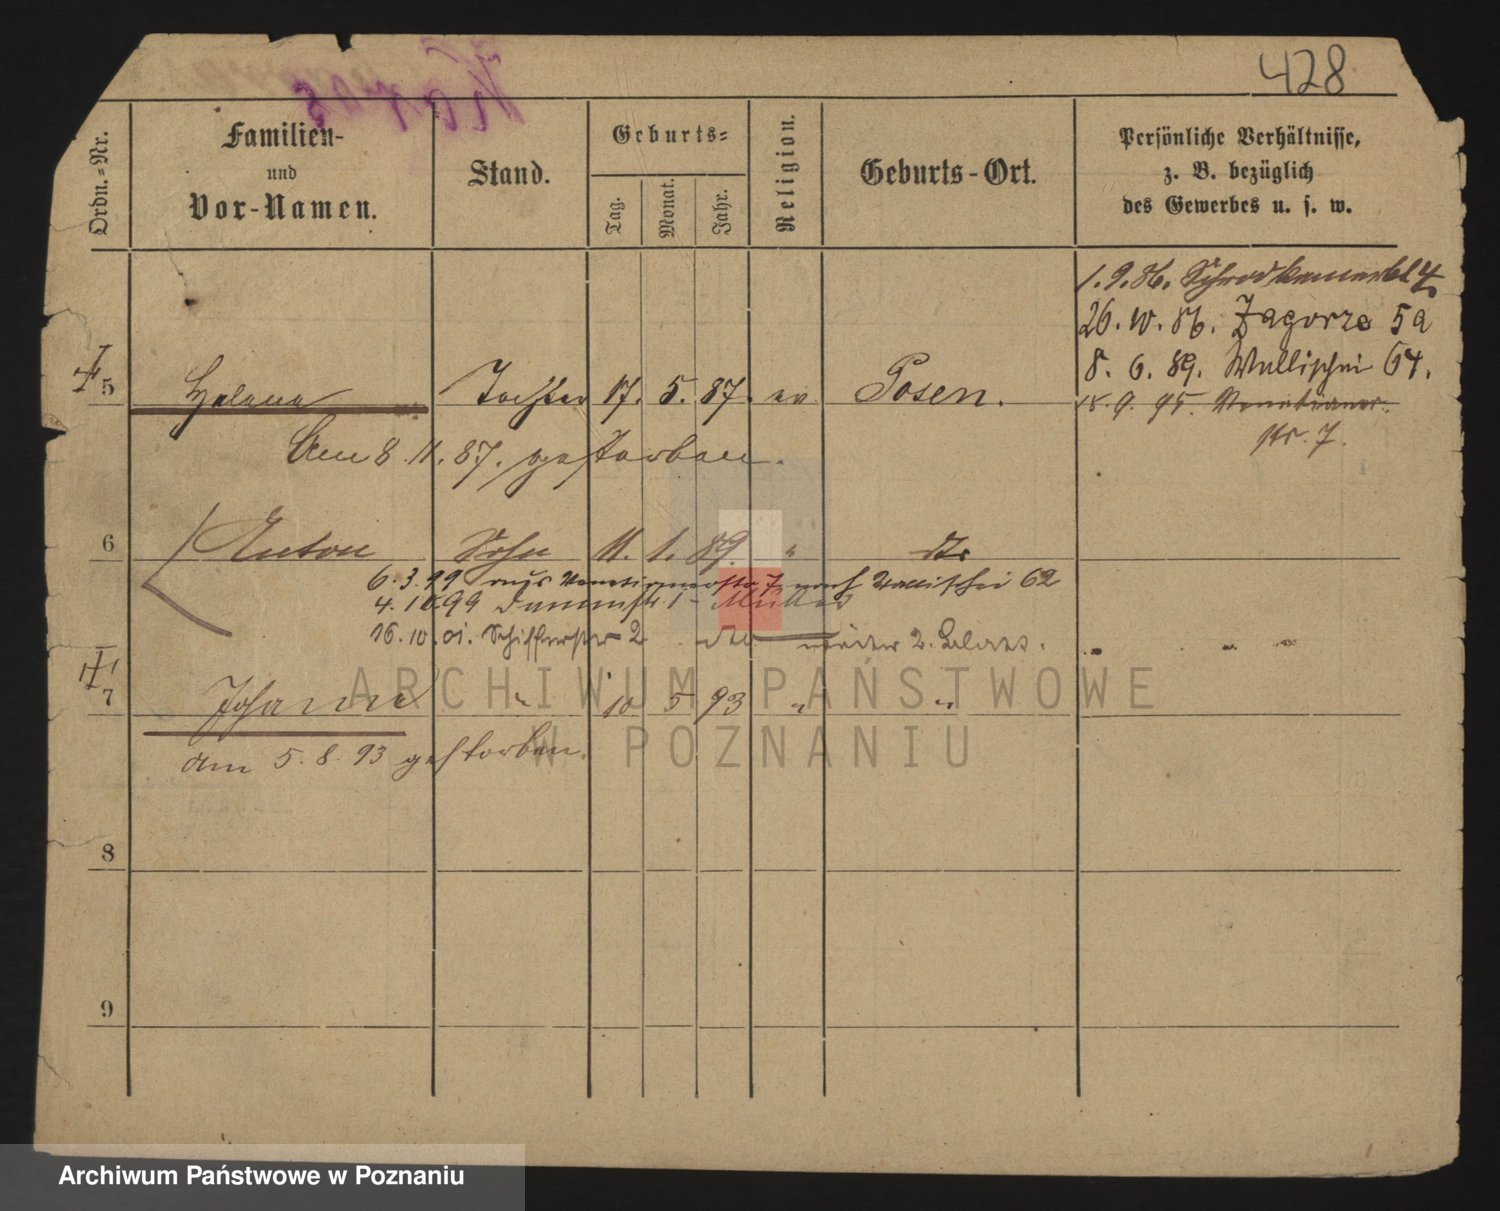 428
Ordn.-Nr.
Familien-
und
Vor-Namen.
Stand.
Geburts-
Tag.
Monat.
Jahr.
Religion.
Geburts-Ort.
Persönliche Verhältnisse,
z. B. bezüglich
des Gewerbes u. s. w.
1. 9. 86.
26. 10. 86. Zagorze 5a
8. 6. 89. Wallischei 64.
18. 9. 95. Venetianer-
str. 7.
5 Helene Tochter 17. 5. 87. ev Posen.
Am 8. 11. 87. gestorben.
6 Anton Sohn 11. 1. 89. " dto
6. 3. 99 aus Venetianerstr 7 nach Wallischei 62
4. 10 99 Dammstr. 1 - Müller
16. 10. 01. Schifferstr 2
7 Johann " 10 5 93 " "
am 5. 8. 93 gestorben.
8
9
ARCHIWUM PAŃSTWOWE
W POZNANIU
Archiwum Państwowe w Poznaniu